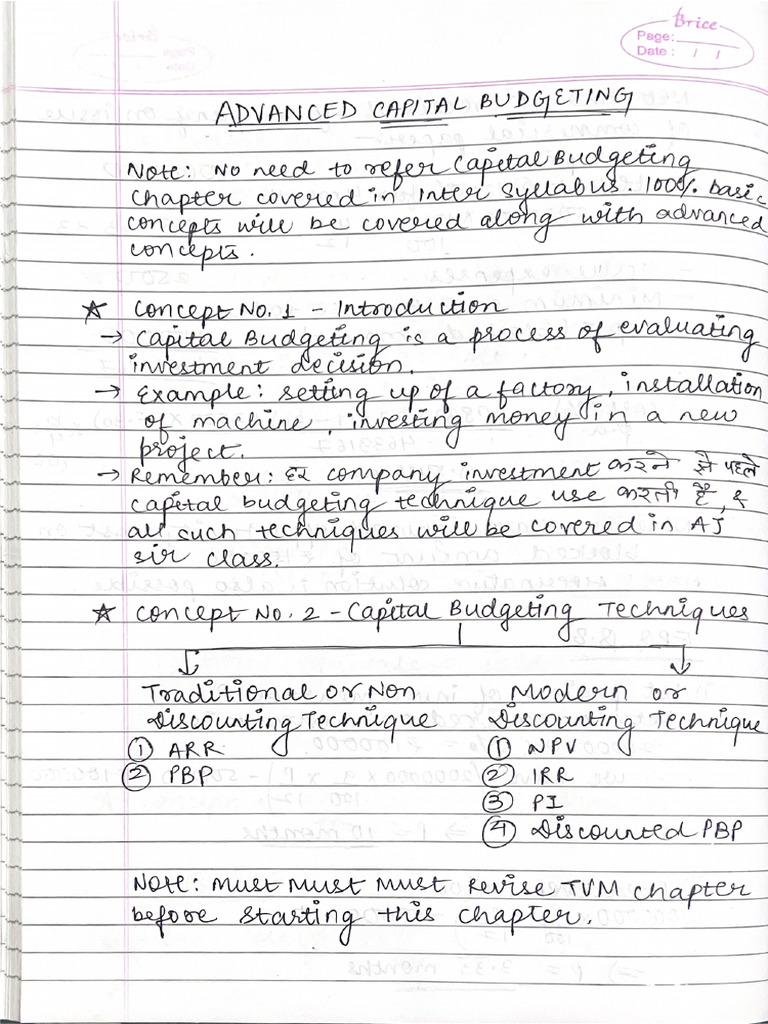 Brice
Page:
Date : / /
ADVANCED CAPITAL BUDGETING
Note: No need to refer Capital Budgeting
Chapter covered in Inter Syllabus. 100% basic
concepts will be covered along with advanced
concepts.
☆ Concept No. 1 - Introduction
→ Capital Budgeting is a process of evaluating
investment decision.
→ Example: setting up of a factory, installation
of machine, investing money in a new
project.
→ Remember: हर company investment करने से पहले
capital budgeting technique use करती है, &
all such techniques will be covered in AJ
sir class.
☆ Concept No. 2 - Capital Budgeting Techniques
Traditional or Non Modern or
Discounting Technique Discounting Technique
① ARR ① NPV
② PBP ② IRR
③ PI
④ Discounted PBP
Note: Must Must Must Revise TVM chapter
before starting this chapter.